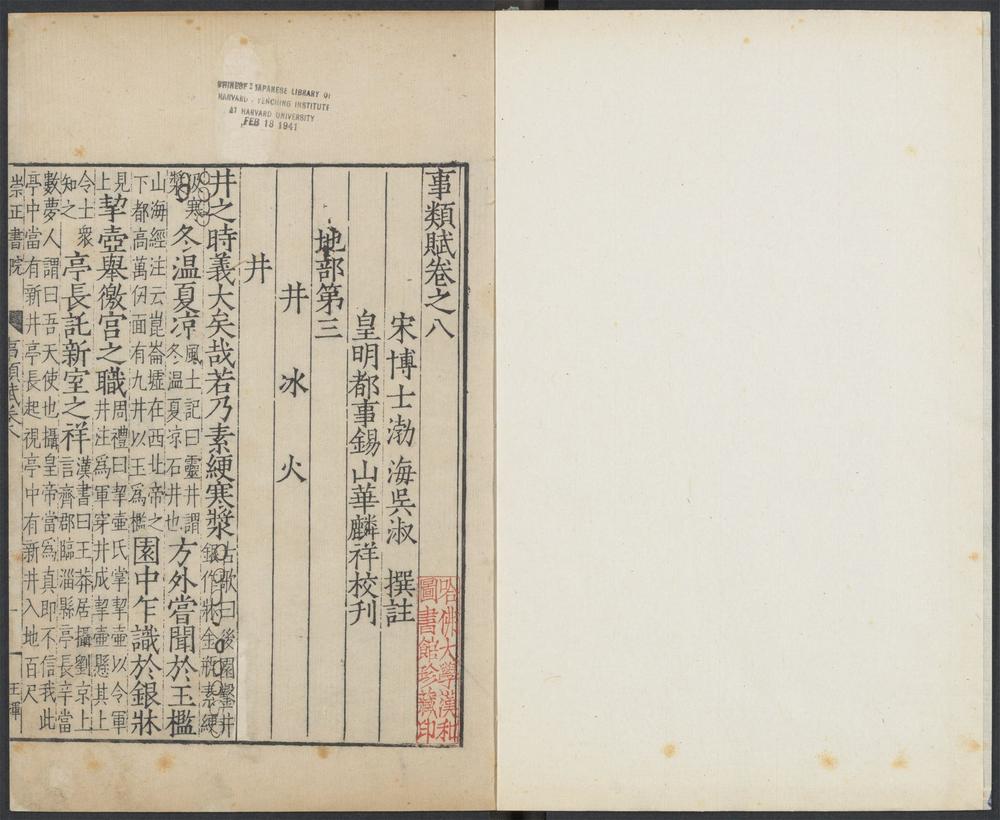 CHINESE-JAPANESE LIBRARY OF
HARVARD-YENCHING INSTITUTE
AT HARVARD UNIVERSITY
FEB 18 1941
事類賦卷之八
宋博士渤海吳淑 撰註
皇明都事錫山華麟祥校刊
地部第三
井 冰 火
井
井之時義大矣哉若乃素綆寒漿古歌曰後園鑿井
銀作牀金瓶素綆
汲寒
漿冬温夏凉風土記曰靈井謂
冬温夏凉石井也方外嘗聞於玉檻
山海經注云崑崙墟在西北帝之
下都高萬仞面有九井以玉爲檻園中乍識於銀牀
見
上挈壺舉徽宫之職周禮曰挈壺氏掌挈壺以令軍
井注爲軍穿井成挈壺懸其上
令士衆
知之亭長託新室之祥漢書曰王莽居攝劉京上
言齊郡臨淄縣亭長辛當
數夢人謂曰吾天使也攝皇帝當爲真即不信我此
亭中當有新井亭長起視亭中有新井入地百尺
崇正書院
事類賦卷八
一
王輝
哈佛大學漢和
圖書館珍藏印